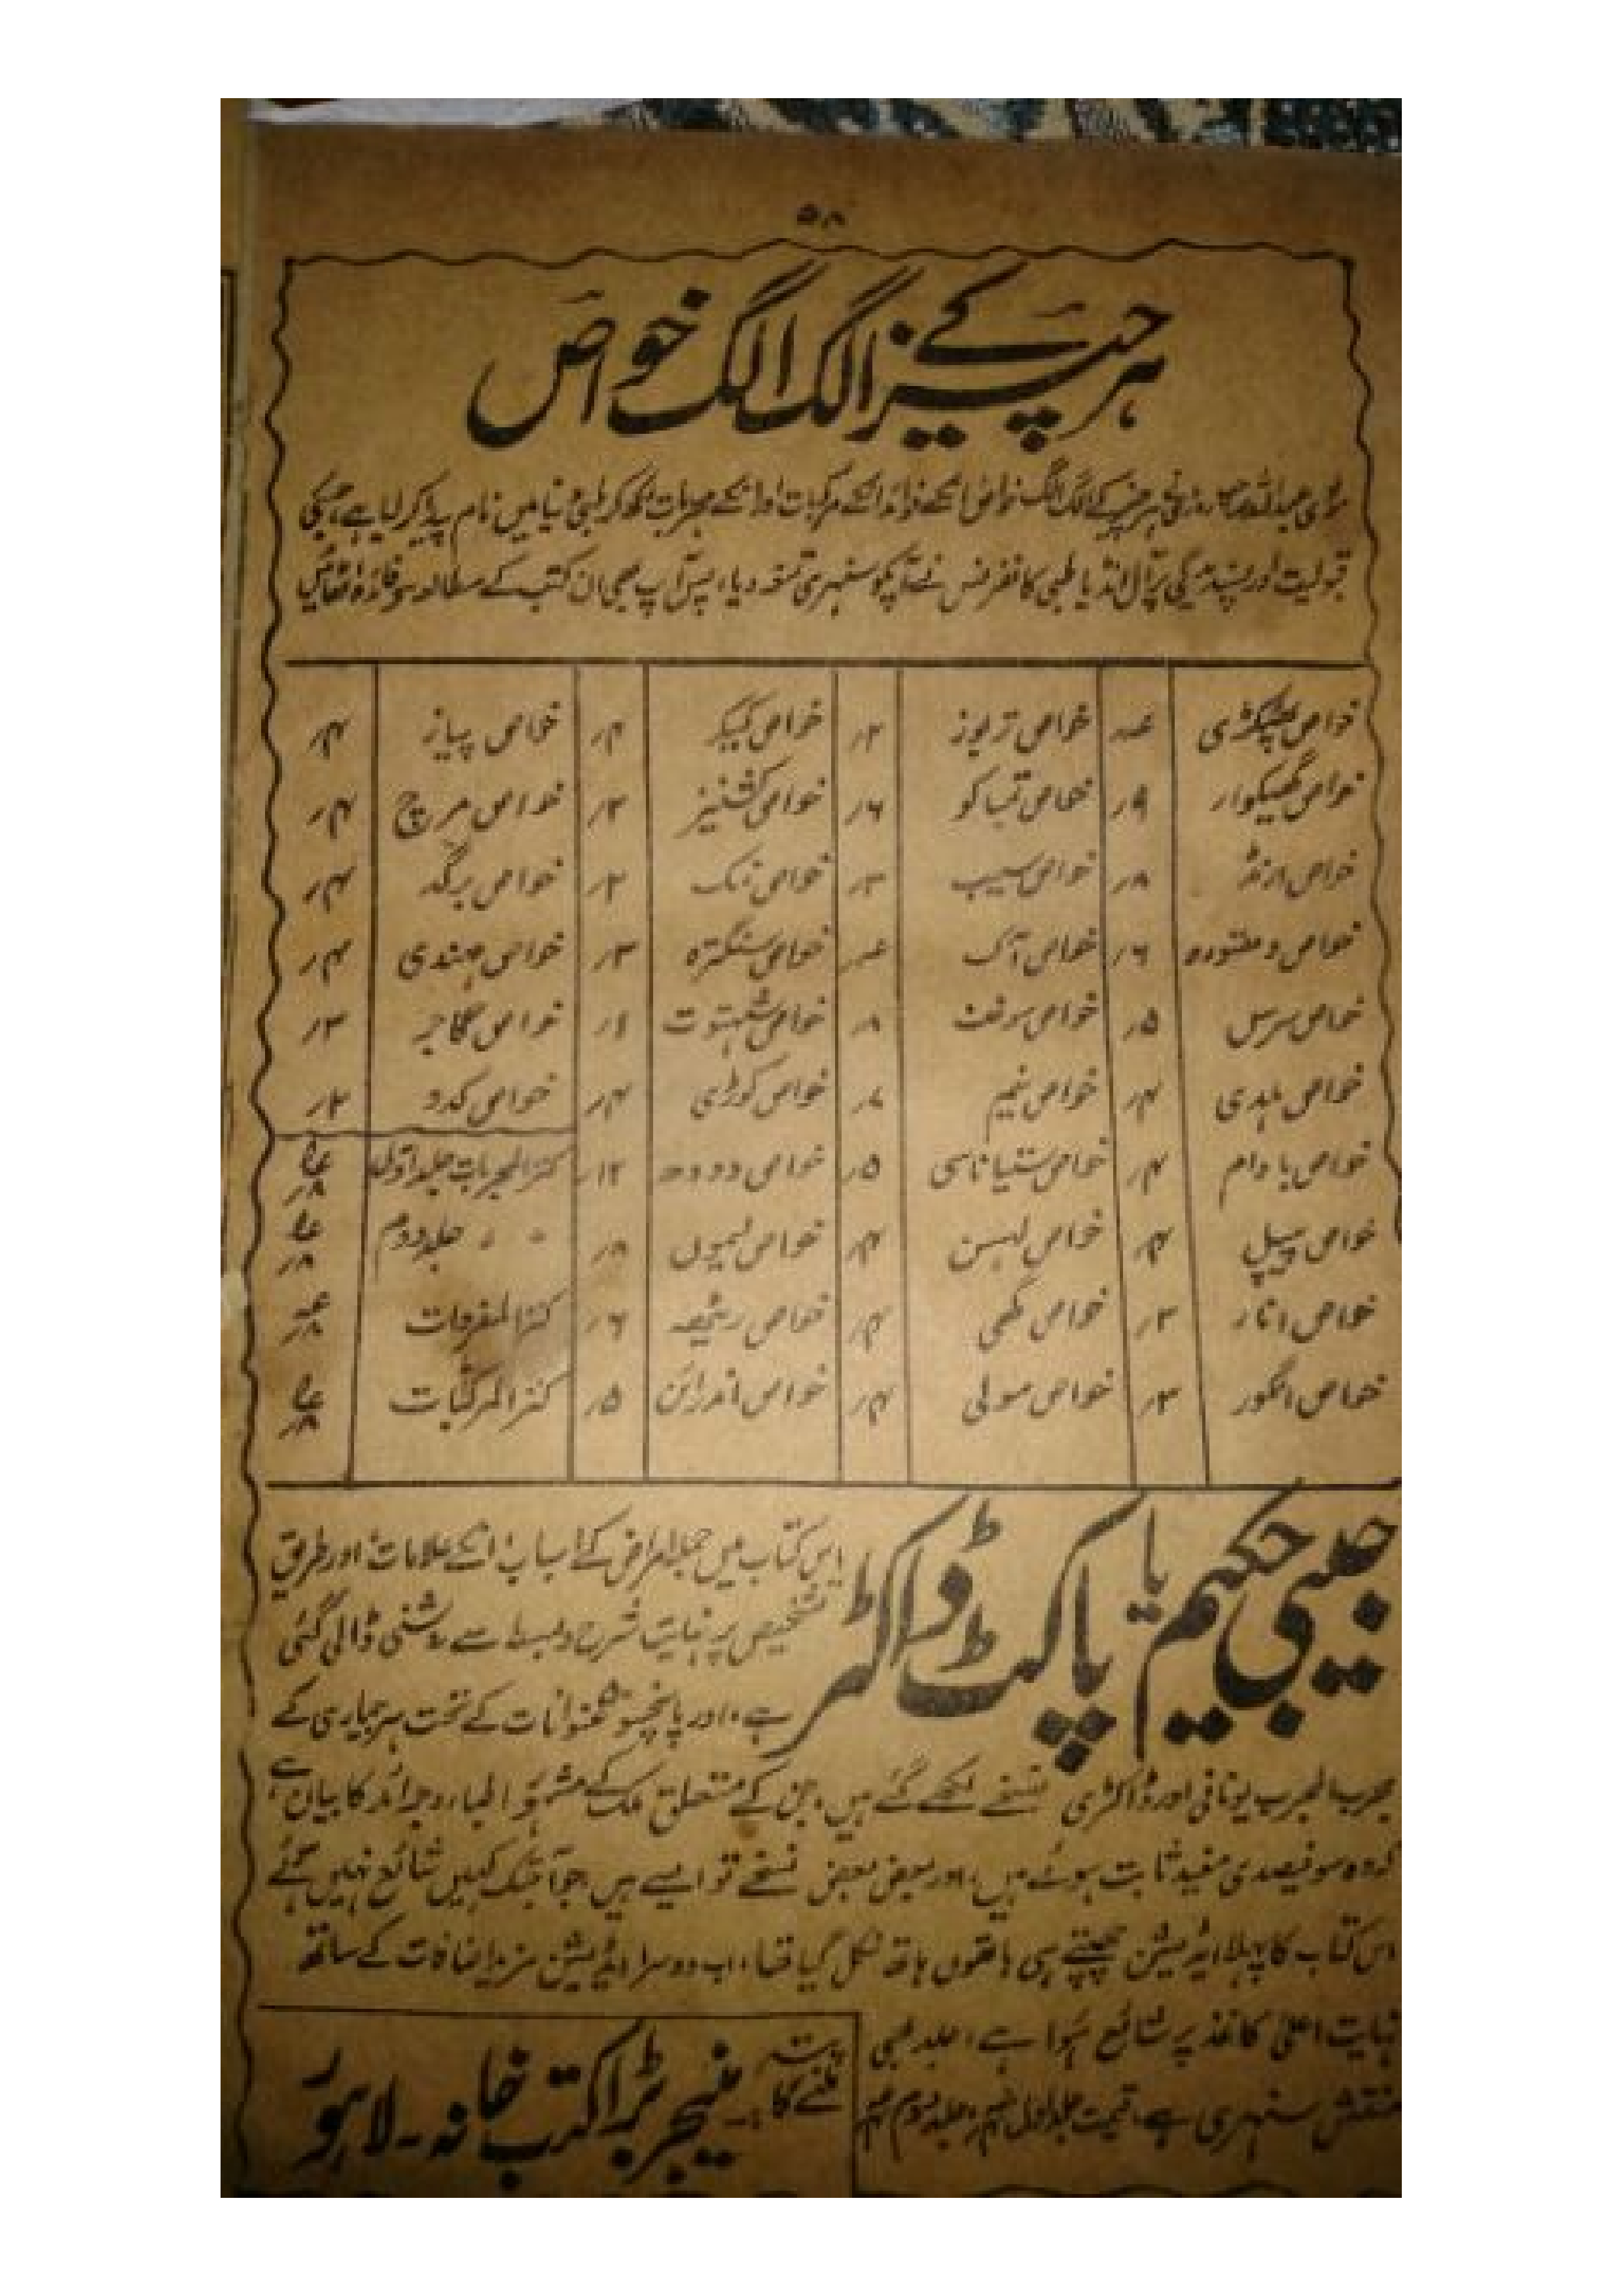 ۵۸
ہر چیز کے الگ الگ خواص
ہر چیز کے الگ الگ خواص انکے فوائد انکے مرکبات اور انکے مجربات لکھ کر طبی دنیا میں نام پیدا کر لیا ہے، جسکی
قبولیت اور پسندیدگی پر آل انڈیا طبی کانفرنس نے آپکو سنہری تمغہ دیا، پس آپ بھی ان کتب کے مطالعہ سے فائدہ اٹھائیں
خواص پھٹکڑی خواص تربوز ۲ر خواص کیکر ۳ر خواص پیاز ۴ر
خواص گھیکوار ۹ر خواص تمباکو ۶ر خواص کشنیز ۲ر خواص مرچ ۴ر
خواص ارنڈ ۸ر خواص سیب ۳ر خواص نمک ۲ر خواص برگد ۴ر
خواص دھتورہ ۶ر خواص آک خواص سنگترہ ۳ر خواص مہندی ۴ر
خواص سرس ۵ر خواص سونف ۸ر خواص شہتوت ۱ر خواص گاجر ۲ر
خواص ہلدی ۴ر خواص نیم خواص کوڑی ۴ر خواص کدو ۲ر
خواص بادام ۴ر خواص ستیاناسی ۵ر خواص دودھ ۱۲ر کنزالمجربات جلد اول
خواص پیپل ۴ر خواص لہسن ۴ر خواص لیموں ۸ر " " جلد دوم
خواص انار ۳ر خواص گھی ۴ر خواص ریٹھہ ۶ر کنزالمفردات
خواص انگور ۳ر خواص مولی ۴ر خواص اندرائن ۵ر کنزالمرکبات
جیبی حکیم یا پاکٹ ڈاکٹر
اس کتاب میں جملہ امراض کے اسباب انکے علامات اور طریق
تشخیص پر نہایت شرح و بسط سے روشنی ڈالی گئی
ہے، اور پانچسو عنوانات کے تحت ہر بیماری کے
مجرب المجرب یونانی اور ڈاکٹری نسخے لکھے گئے ہیں، جن کے متعلق ملک کے مشہور اطباء و جرائد کا بیان ہے
کہ وہ سو فیصدی مفید ثابت ہوئے ہیں، اور بعض بعض نسخے تو ایسے ہیں جو آجتک کہیں شائع نہیں ہوئے
اس کتاب کا پہلا ایڈیشن چھپتے ہی ہاتھوں ہاتھ نکل گیا تھا، اب دوسرا ایڈیشن مزید اضافات کے ساتھ
نہایت اعلیٰ کاغذ پر شائع ہوا ہے، جلد طبی
منقش سنہری ہے، قیمت جلد اول جلد دوم
ملنے کا پتہ:۔ منیجر بڑا کتب خانہ۔ لاہور